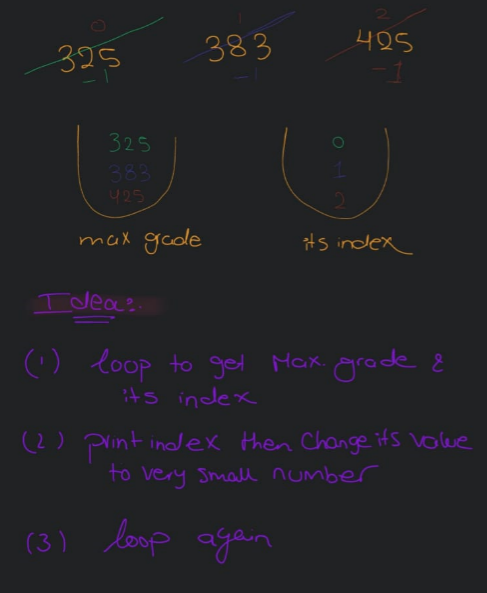 0 1 2
325 383 425
-1 -1 -1
325 0
383 1
425 2
max grade its index
Idea:.
(1) loop to get Max. grade &
its index
(2) print index then Change its value
to very small number
(3) loop again